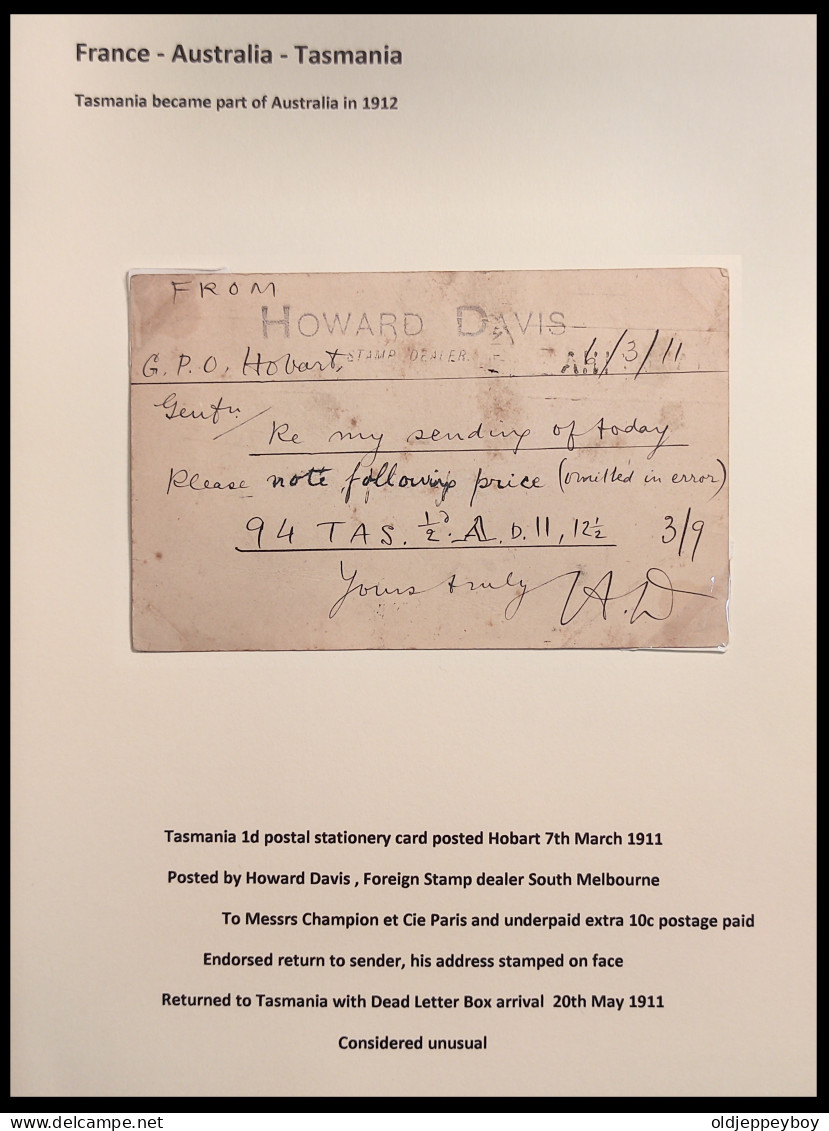 France - Australia - Tasmania
Tasmania became part of Australia in 1912
FROM
HOWARD DAVIS
STAMP DEALER.
G.P.O, Hobart, 6/3/11
Gentn
Re my sending of today
Please note following price (omitted in error)
94 TAS. ½d. A. D. 11, 12½ 3/9
Yours truly H.D
Tasmania 1d postal stationery card posted Hobart 7th March 1911
Posted by Howard Davis , Foreign Stamp dealer South Melbourne
To Messrs Champion et Cie Paris and underpaid extra 10c postage paid
Endorsed return to sender, his address stamped on face
Returned to Tasmania with Dead Letter Box arrival 20th May 1911
Considered unusual
oldjeppeyboy